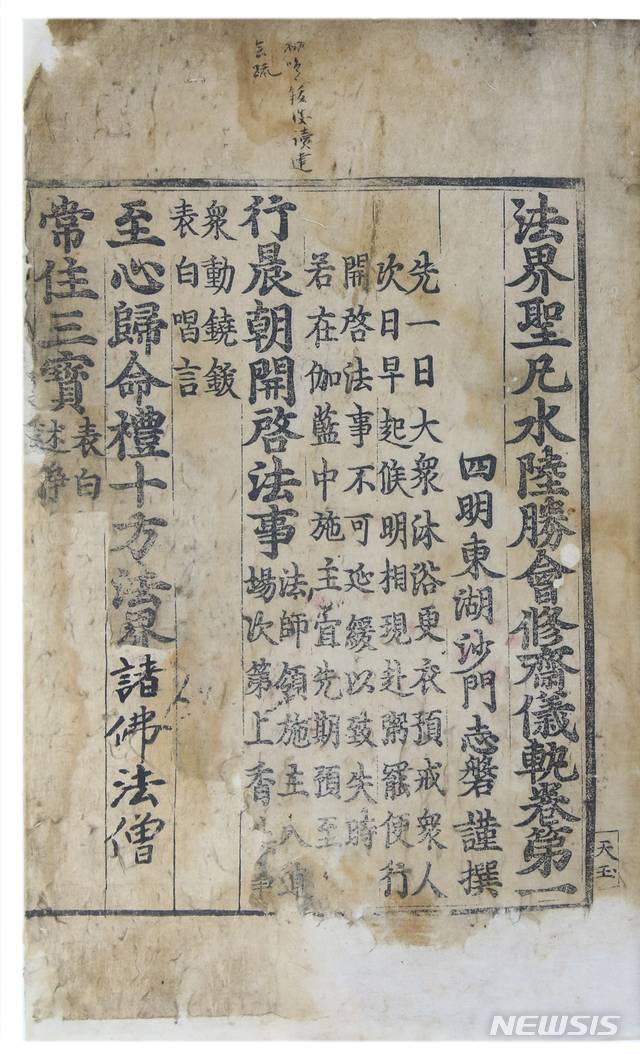 法界聖凡水陸勝會修齋儀軌卷第一
四明東湖沙門志磐謹撰
先一日大衆沐浴更衣預戒衆人
次日早起候明相現赴粥罷便行
開啓法事不可延緩以致失時
若在伽藍中施主宜先期預至
行晨朝開啓法事
法師領施主入道
場次第上香
衆動鐃鈸
表白唱言
至心歸命禮十方法界諸佛法僧
常住三寶
表白
述淨
天玉
讀建
会疏
NEWSIS